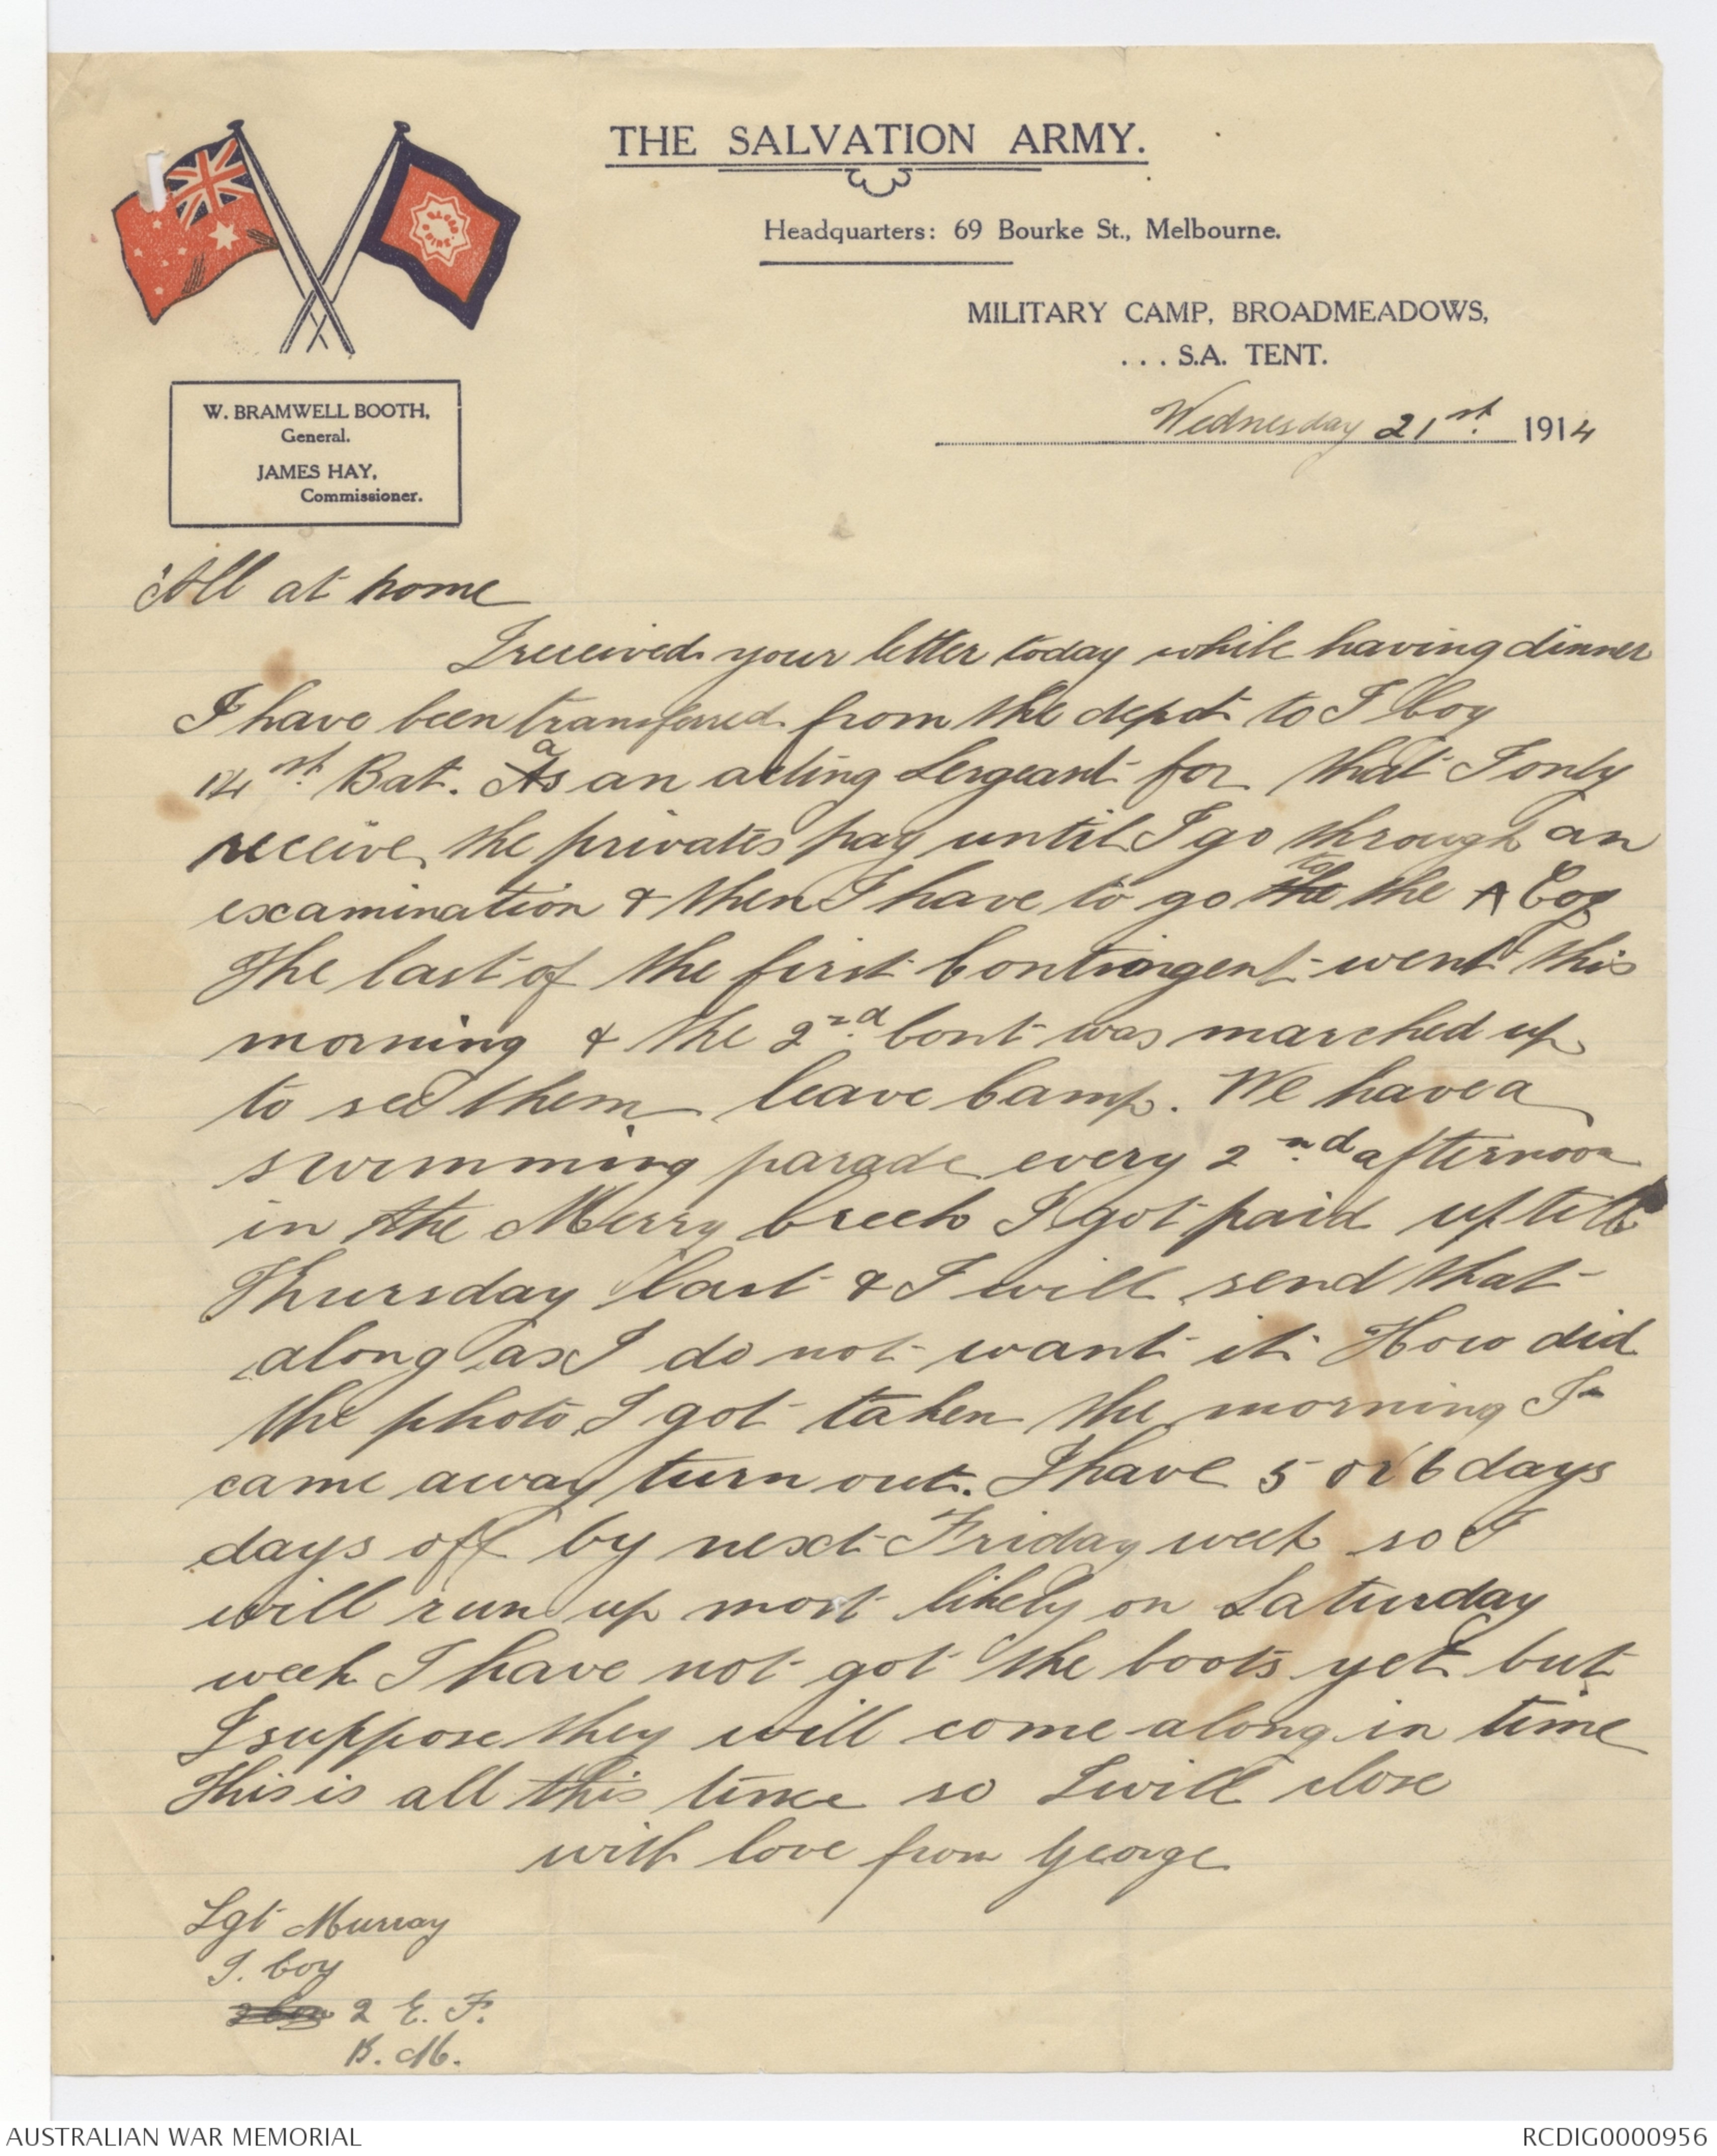 THE SALVATION ARMY.
Headquarters: 69 Bourke St., Melbourne.
MILITARY CAMP, BROADMEADOWS,
... S.A. TENT.
Wednesday 21st. 1914
BLOOD FIRE
W. BRAMWELL BOOTH,
General.
JAMES HAY,
Commissioner.
All at home
I received your letter today while having dinner
I have been transferred from the depot to I Coy
14st Bat. As an acting Sergeant for that I only
receive the privates pay until I go through an
examination & then I have to go the to the A Coy
The last of the first Contingent went this
morning & the 2nd. Cont was marched up
to see them leave Camp. We have a
swimming parade every 2nd. afternoon
in the Merry Creek I got paid up till
Thursday last & I will send that
along as I do not want it. How did
the photo I got taken the morning I
came away turn out. I have 5 or 6 days
days off by next Friday week so I
will run up most likely on Saturday
week I have not got the boots yet but
I suppose they will come along in time
This is all this time so I will close
with love from George
Sgt Murray
I. Coy
2 E. F.
B. M.
AUSTRALIAN WAR MEMORIAL
RCDIG0000956